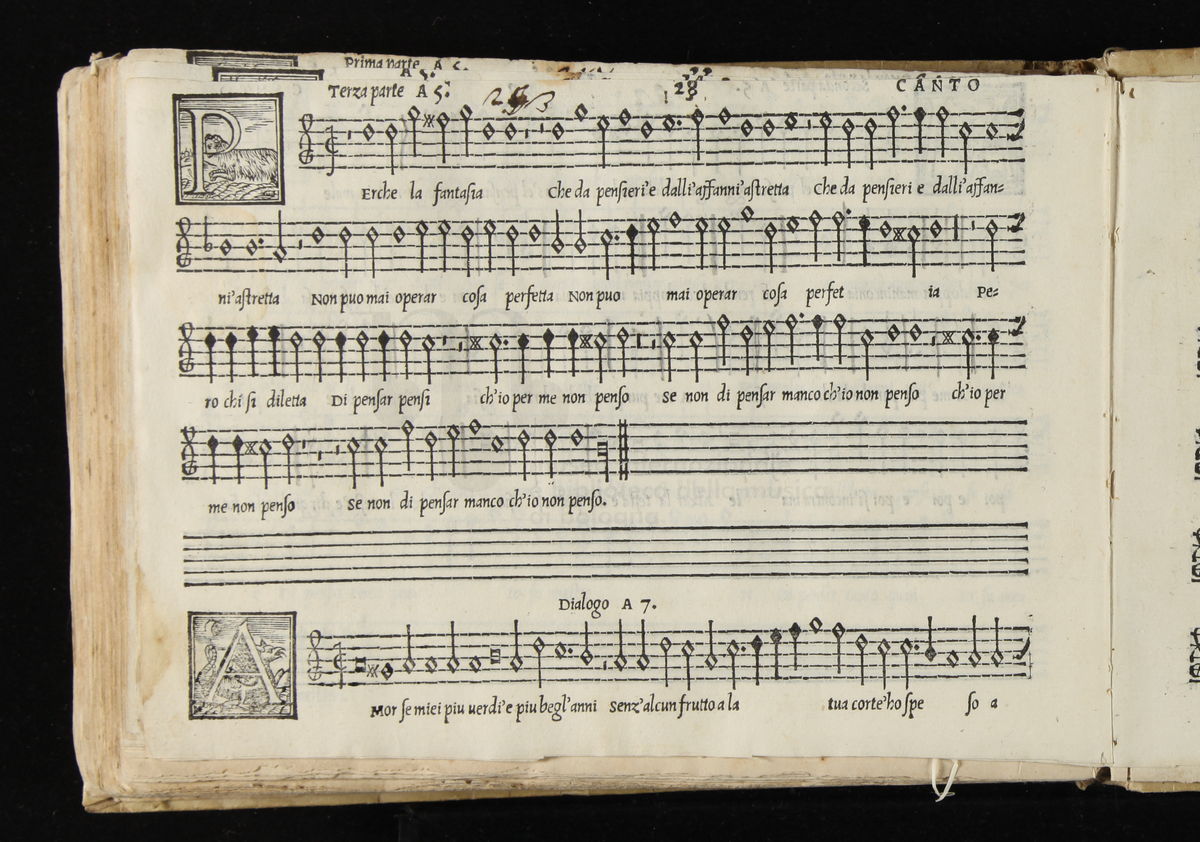 Prima parte A 5.
A 5.
Terza parte A 5. 28 CANTO
PErche la fantasia Che da pensieri'e dalli'affanni'astretta Che da pensieri e dalli'affan=
ni'astretta Non puo mai operar cosa perfetta Non puo mai operar cosa perfet ia Pe=
ro chi si diletta Di pensar pensi ch'io per me non penso Se non di pensar manco ch'io non penso ch'io per
me non penso Se non di pensar manco ch'io non penso.
Dialogo A 7.
AMor se miei piu uerdi'e piu begl'anni Senz'alcun frutto a la tua corte'ho spe so a